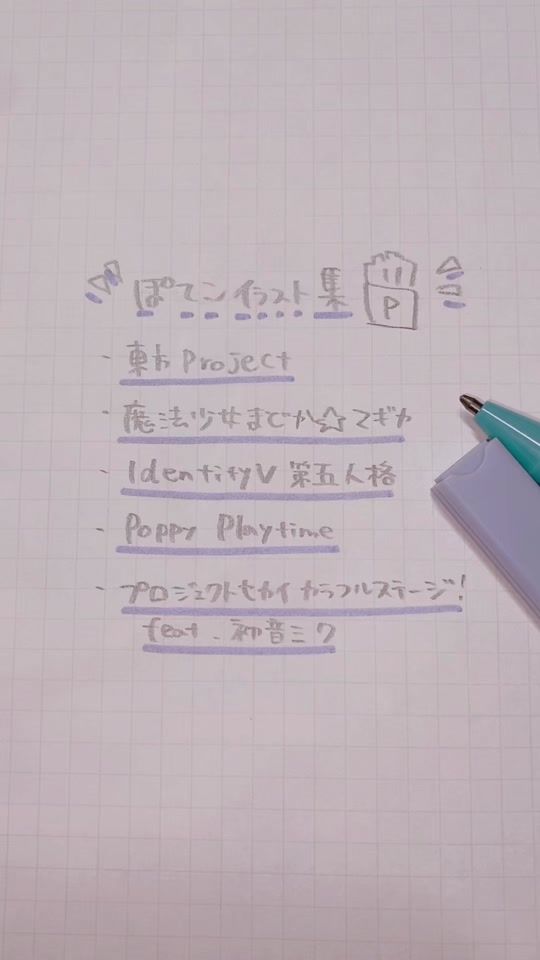 ぽてこイラスト集 P
・東方Project
・魔法少女まどか☆マギカ
・IdentityV 第五人格
・Poppy Playtime
・プロジェクトセカイ カラフルステージ!
feat. 初音ミク